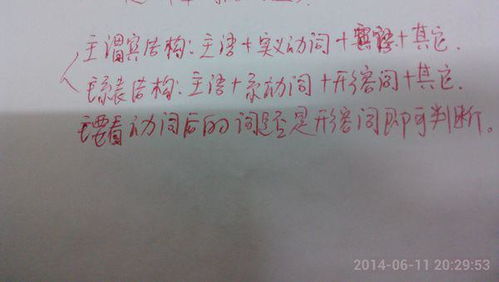 主谓宾结构：主语+实义动词+宾语+其它.
主系表结构：主语+系动词+形容词+其它.
主要看动词后的词是形容词即可判断。
2014-06-11 20:29:53